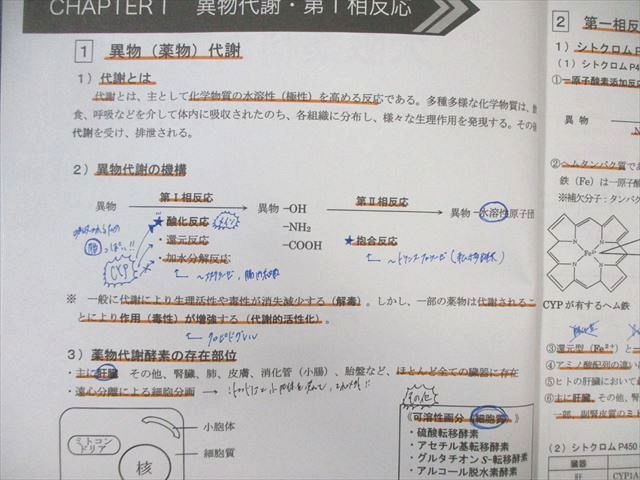 CHAPTER 1 異物代謝・第Ⅰ相反応
1 異物（薬物）代謝
1）代謝とは
代謝とは、主として化学物質の水溶性（極性）を高める反応である。多種多様な化学物質は、
食、呼吸などを介して体内に吸収されたのち、各組織に分布し、様々な生理作用を発現する。その
代謝を受け、排泄される。
2）異物代謝の機構
異物 第Ⅰ相反応 異物-OH 第Ⅱ相反応 異物-水溶性原子団
★酸化反応 メイン -NH₂
・還元反応 -COOH ★抱合反応
・加水分解反応
CYP
※ 一般に代謝により生理活性や毒性が消失減少する（解毒）。しかし、一部の薬物は代謝されるこ
とにより作用（毒性）が増強する（代謝的活性化）。
クロピドグレル
3）薬物代謝酵素の存在部位
・主に肝臓 その他、腎臓、肺、皮膚、消化管（小腸）、胎盤など、ほとんど全ての臓器に存在
・遠心分離による細胞分画
小胞体
ミトコンドリア
細胞質
核
その他
可溶性画分（細胞質）
・硫酸転移酵素
・アセチル基転移酵素
・グルタチオンS-転移酵素
・アルコール脱水素酵素
2 第一相反
1）シトクロム
（1）シトクロムP45
①一原子酸素添加反応
異物
②ヘムタンパク質であ
鉄（Fe）は一原子酸
※補欠分子：タンパク
Fe
CYPが有するヘム鉄
③還元型（Fe²⁺）と
④アミノ酸配列の違い
⑤ヒトの肝臓において
⑥主に肝臓、その他、腎
一部、副腎皮質のミト
（2）シトクロムP450
臓器
肝 CYP1A